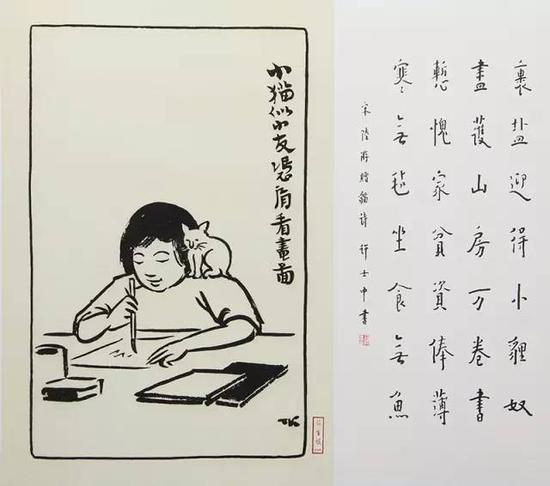 小猫似小友憑肩看畫圖
TK
裹盐迎得小貍奴
盡護山房万卷書
慙愧家貧資俸薄
寒無毡坐食無魚
宋陸游贈貓詩 許士中書